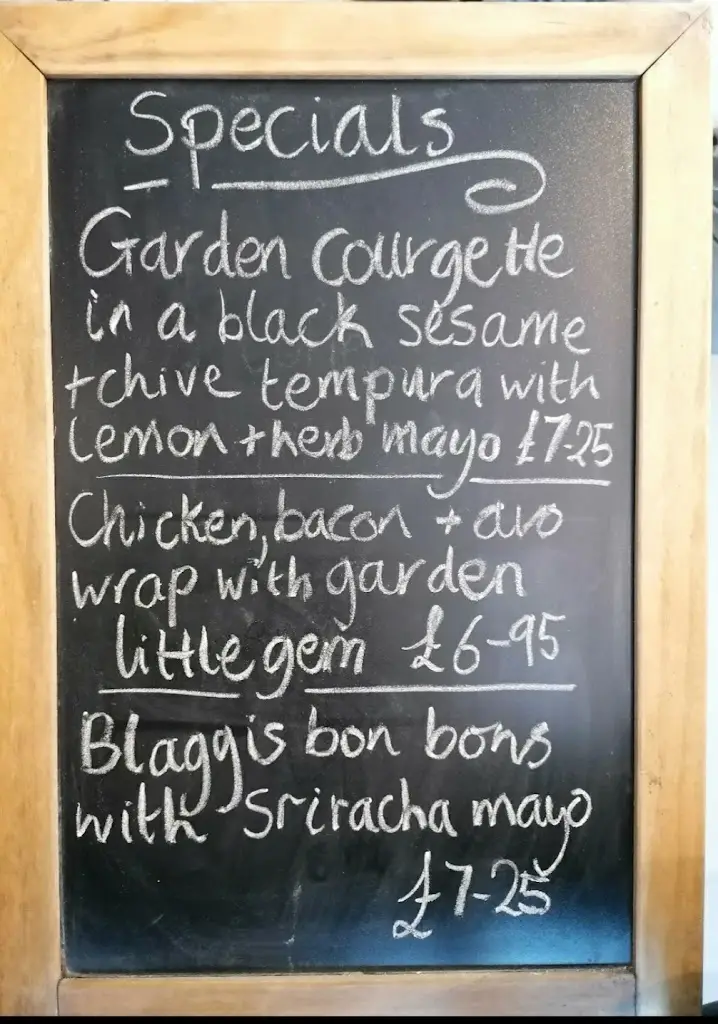 Specials
Garden Courgette
in a black sesame
+chive tempura with
lemon + herb mayo £7-25
Chicken, bacon + avo
wrap with garden
little gem £6-95
Blaggis bon bons
with Sriracha mayo
£7-25